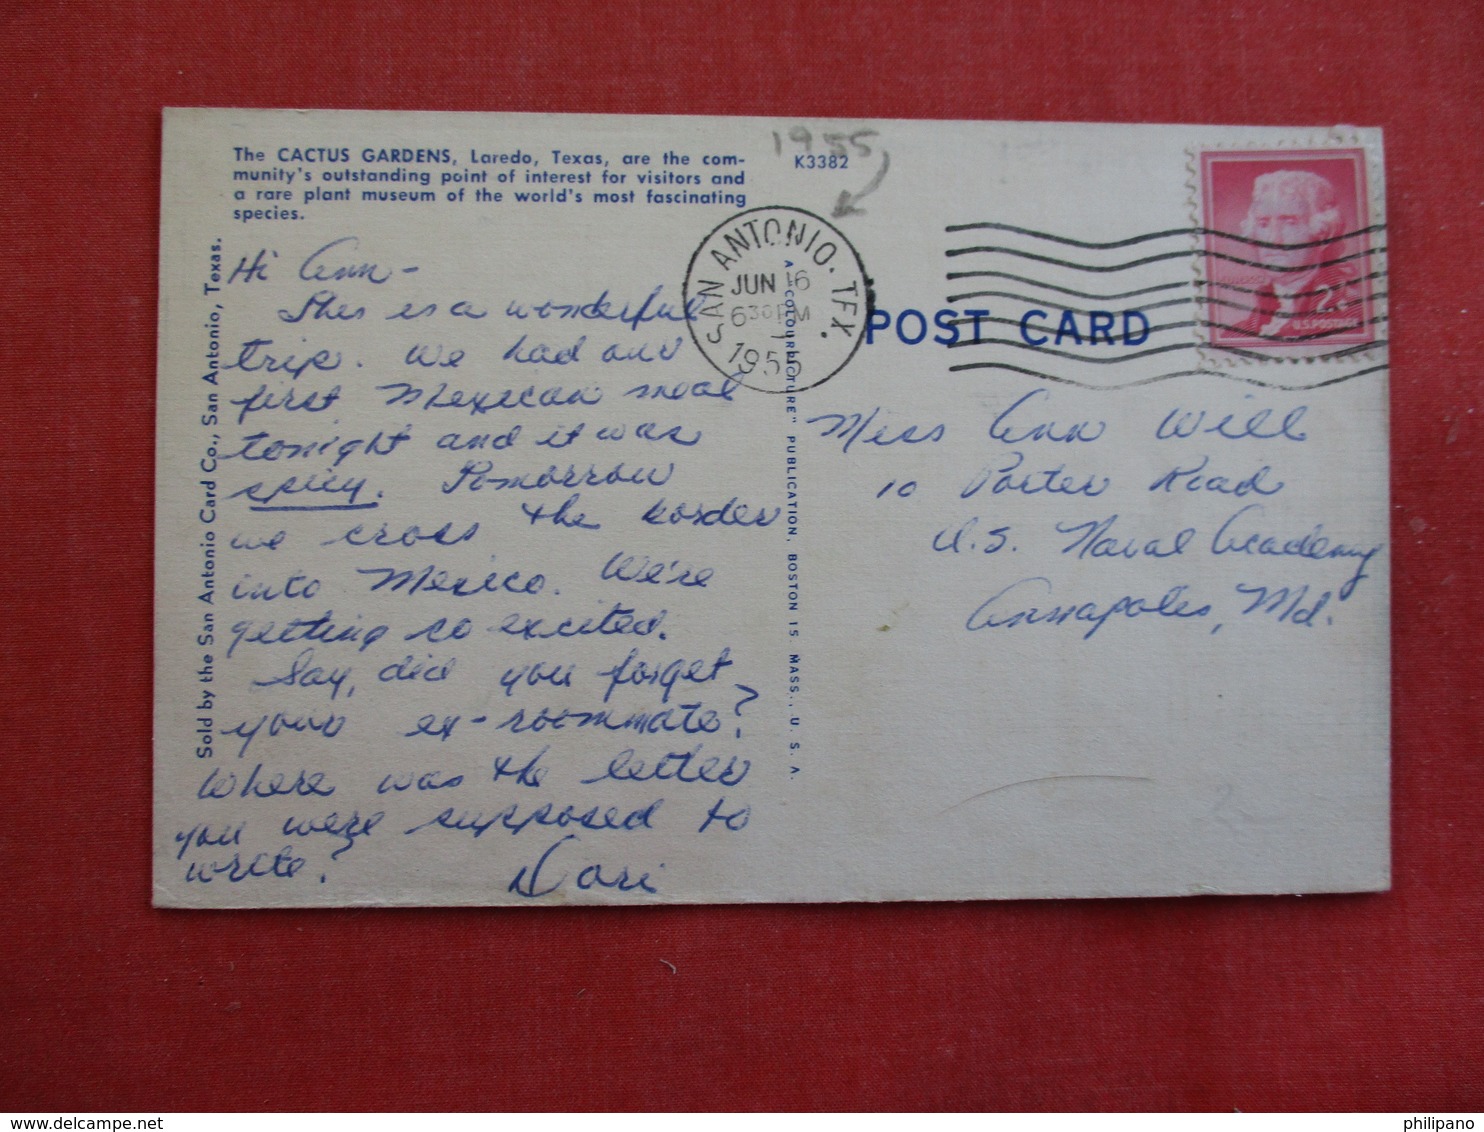 The CACTUS GARDENS, Laredo, Texas, are the com-
munity's outstanding point of interest for visitors and
a rare plant museum of the world's most fascinating
species.
Hi Ann -
This is a wonderful
trip. We had our
first Mexican meal
tonight and it was
spicy. Tomorrow
we cross the border
into Mexico. We're
getting so excited.
Say, did you forget
your ex-roommate?
Where was the letter
you were supposed to
write?
Dori
Sold by the San Antonio Card Co., San Antonio, Texas.
1955
K3382
SAN ANTONIO, TEX.
JUN 16
6 30 PM
1955
A "COLOURPICTURE" PUBLICATION, BOSTON 15, MASS., U. S. A.
POST CARD
2¢
U.S. POSTAGE
Miss Ann Will
10 Porter Road
U.S. Naval Academy
Annapolis, Md.
delcampe.net
philipano